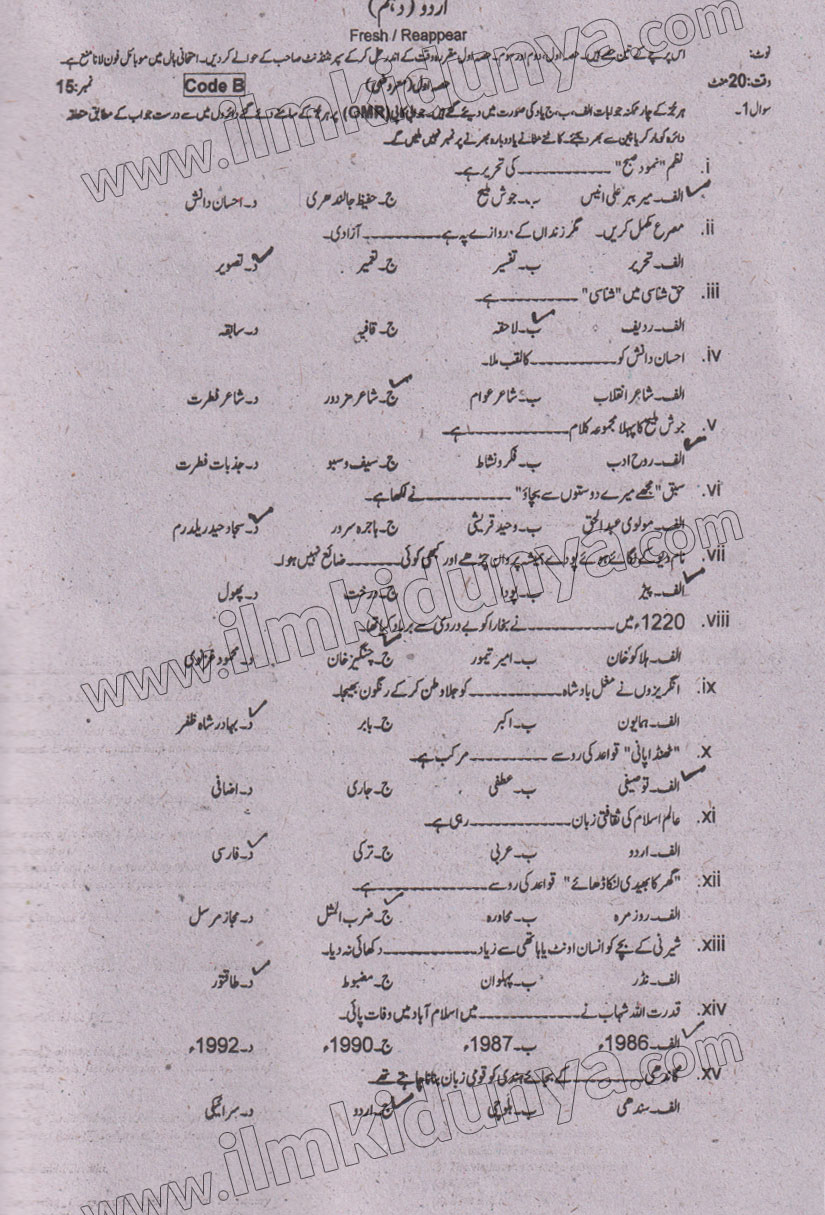 اردو (دہم)
Fresh / Reappear
نوٹ: اس پرچے کے تین حصے ہیں۔ حصہ اول، دوم اور سوم۔ حصہ اول مقررہ وقت کے اندر حل کر کے سپرنٹنڈنٹ صاحب کے حوالے کر دیں۔ امتحانی ہال میں موبائل فون لانا منع ہے۔
وقت: 20 منٹ حصہ اول (معروضی) Code B نمبر: 15
سوال 1۔ ہر جز کے چار ممکنہ جوابات الف، ب، ج یا د کی صورت میں دیئے گئے ہیں۔ جوابی کاپی (OMR) پر ہر جز کے سامنے دیئے گئے دائروں میں سے درست جواب کے مطابق متعلقہ
دائرہ کو مارکر یا پین سے بھر دیجئے۔ کاٹنے مٹانے یا دوبارہ بھرنے پر نمبر نہیں ملیں گے۔
i. نظم "نمود صبح" ۔۔۔۔۔۔۔۔ کی تحریر ہے۔
الف۔ میر ببر علی انیس ب۔ جوش ملیح ج۔ حفیظ جالندھری د۔ احسان دانش
ii. مصرع مکمل کریں۔ مگر زنداں کے دروازے پہ ہے ۔۔۔۔۔۔۔۔ آزادی۔
الف۔ تحریر ب۔ تفسیر ج۔ تعمیر د۔ تصویر
iii. حق شناسی میں "شناسی" ۔۔۔۔۔۔۔۔ ہے۔
الف۔ ردیف ب۔ لاحقہ ج۔ قافیہ د۔ سابقہ
iv. احسان دانش کو ۔۔۔۔۔۔۔۔ کا لقب ملا۔
الف۔ شاعر انقلاب ب۔ شاعر عوام ج۔ شاعر مزدور د۔ شاعر فطرت
v. جوش ملیح کا پہلا مجموعہ کلام ۔۔۔۔۔۔۔۔ ہے۔
الف۔ روح ادب ب۔ فکر و نشاط ج۔ سیف و سبو د۔ جذبات فطرت
vi. سبق "مجھے میرے دوستوں سے بچاؤ" ۔۔۔۔۔۔۔۔ نے لکھا ہے۔
الف۔ مولوی عبدالحق ب۔ وحید قریشی ج۔ ہاجرہ مسرور د۔ سجاد حیدر یلدرم
vii. نام دیو کے لگائے ہوئے پودے ہمیشہ پروان چڑھے اور کبھی کوئی ۔۔۔۔۔۔۔۔ ضائع نہیں ہوا۔
الف۔ پیڑ ب۔ پودا ج۔ درخت د۔ پھول
viii. 1220ء میں ۔۔۔۔۔۔۔۔ نے بخارا کو بے دردی سے برباد کیا تھا۔
الف۔ ہلاکو خان ب۔ امیر تیمور ج۔ چنگیز خان د۔ محمود غزنوی
ix. انگریزوں نے مغل بادشاہ ۔۔۔۔۔۔۔۔ کو جلاوطن کر کے رنگون بھیجا۔
الف۔ ہمایون ب۔ اکبر ج۔ بابر د۔ بہادر شاہ ظفر
x. "ٹھنڈا پانی" قواعد کی رو سے ۔۔۔۔۔۔۔۔ مرکب ہے۔
الف۔ توصیفی ب۔ عطفی ج۔ جاری د۔ اضافی
xi. عالم اسلام کی ثقافتی زبان ۔۔۔۔۔۔۔۔ رہی ہے۔
الف۔ اردو ب۔ عربی ج۔ ترکی د۔ فارسی
xii. "گھر کا بھیدی لنکا ڈھائے" قواعد کی رو سے ۔۔۔۔۔۔۔۔ ہے۔
الف۔ روزمرہ ب۔ محاورہ ج۔ ضرب المثل د۔ مجاز مرسل
xiii. شیرنی کے بچے کو انسان اونٹ یا ہاتھی سے زیادہ ۔۔۔۔۔۔۔۔ دکھائی نہ دیا۔
الف۔ نڈر ب۔ پہلوان ج۔ مضبوط د۔ طاقتور
xiv. قدرت اللہ شہاب نے ۔۔۔۔۔۔۔۔ میں اسلام آباد میں وفات پائی۔
الف۔ 1986ء ب۔ 1987ء ج۔ 1990ء د۔ 1992ء
xv. گاندھی ۔۔۔۔۔۔۔۔ کے بجائے ہندی کو قومی زبان بنانا چاہتے تھے۔
الف۔ سندھی ب۔ بلوچی ج۔ اردو د۔ سرائیکی
www.ilmkidunya.com
www.ilmkidunya.com
www.ilmkidunya.com